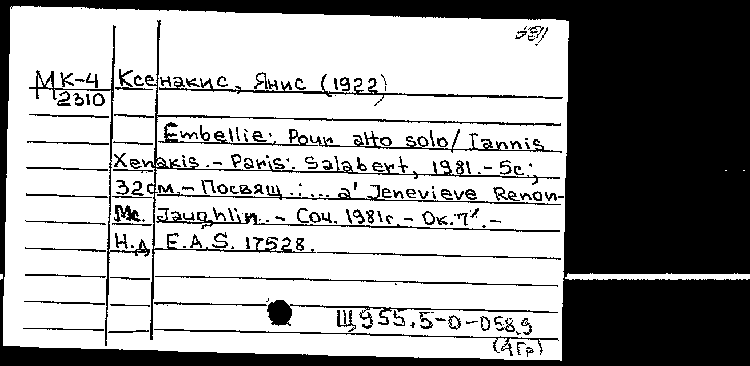 МК-4 Ксенакис, Янис (1922)
2310
Embellie: Pour alto solo/ Iannis
Xenakis. - Paris: Salabert, 1981. - 5с.;
32см. - Посвящ.: ... a' Jenevieve Renon-
Mc. Jaughlin. - Соч. 1981г. - Ок. 7'. -
Н.д. E.A.S. 17528.
Щ955.5-0-058,9
(4Гр)